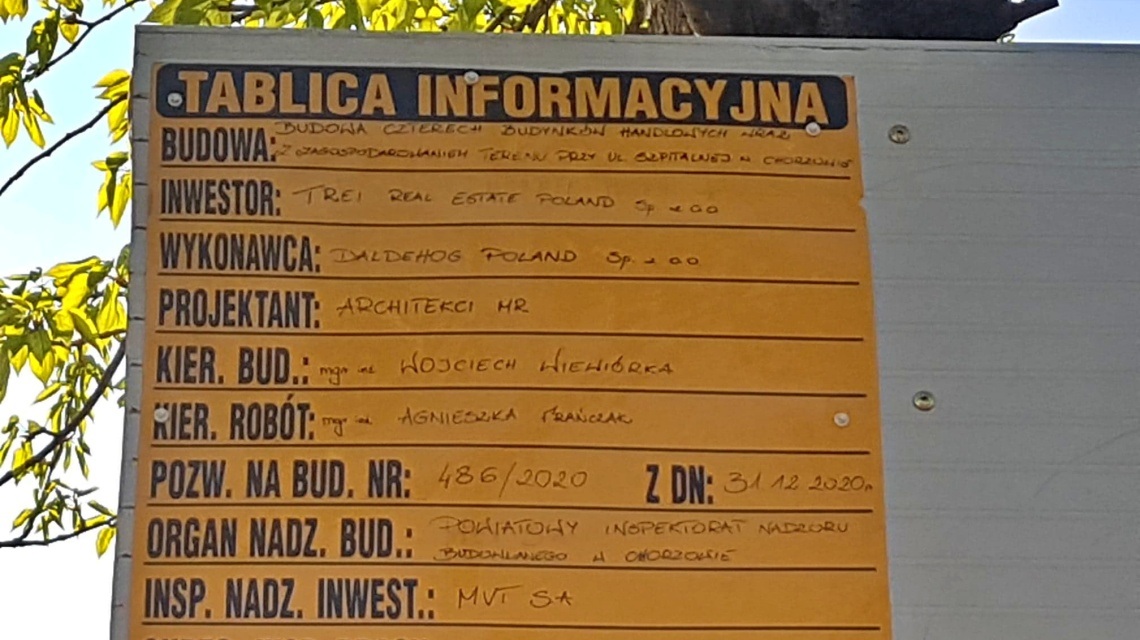 TABLICA INFORMACYJNA
BUDOWA: BUDOWA CZTERECH BUDYNKÓW HANDLOWYCH WRAZ
Z ZAGOSPODAROWANIEM TERENU PRZY UL. SZPITALNEJ W CHORZOWIE
INWESTOR: TREI REAL ESTATE POLAND Sp. z o.o
WYKONAWCA: DALDEHOG POLAND Sp. z o.o
PROJEKTANT: ARCHITEKCI MR
KIER. BUD.: mgr inż. WOJCIECH WIEWIÓRKA
KIER. ROBÓT: mgr inż. AGNIESZKA FRAŃCZAK
POZW. NA BUD. NR: 486/2020 Z DN: 31.12.2020r.
ORGAN NADZ. BUD.: POWIATOWY INSPEKTORAT NADZORU
BUDOWLANEGO W CHORZOWIE
INSP. NADZ. INWEST.: MVT SA